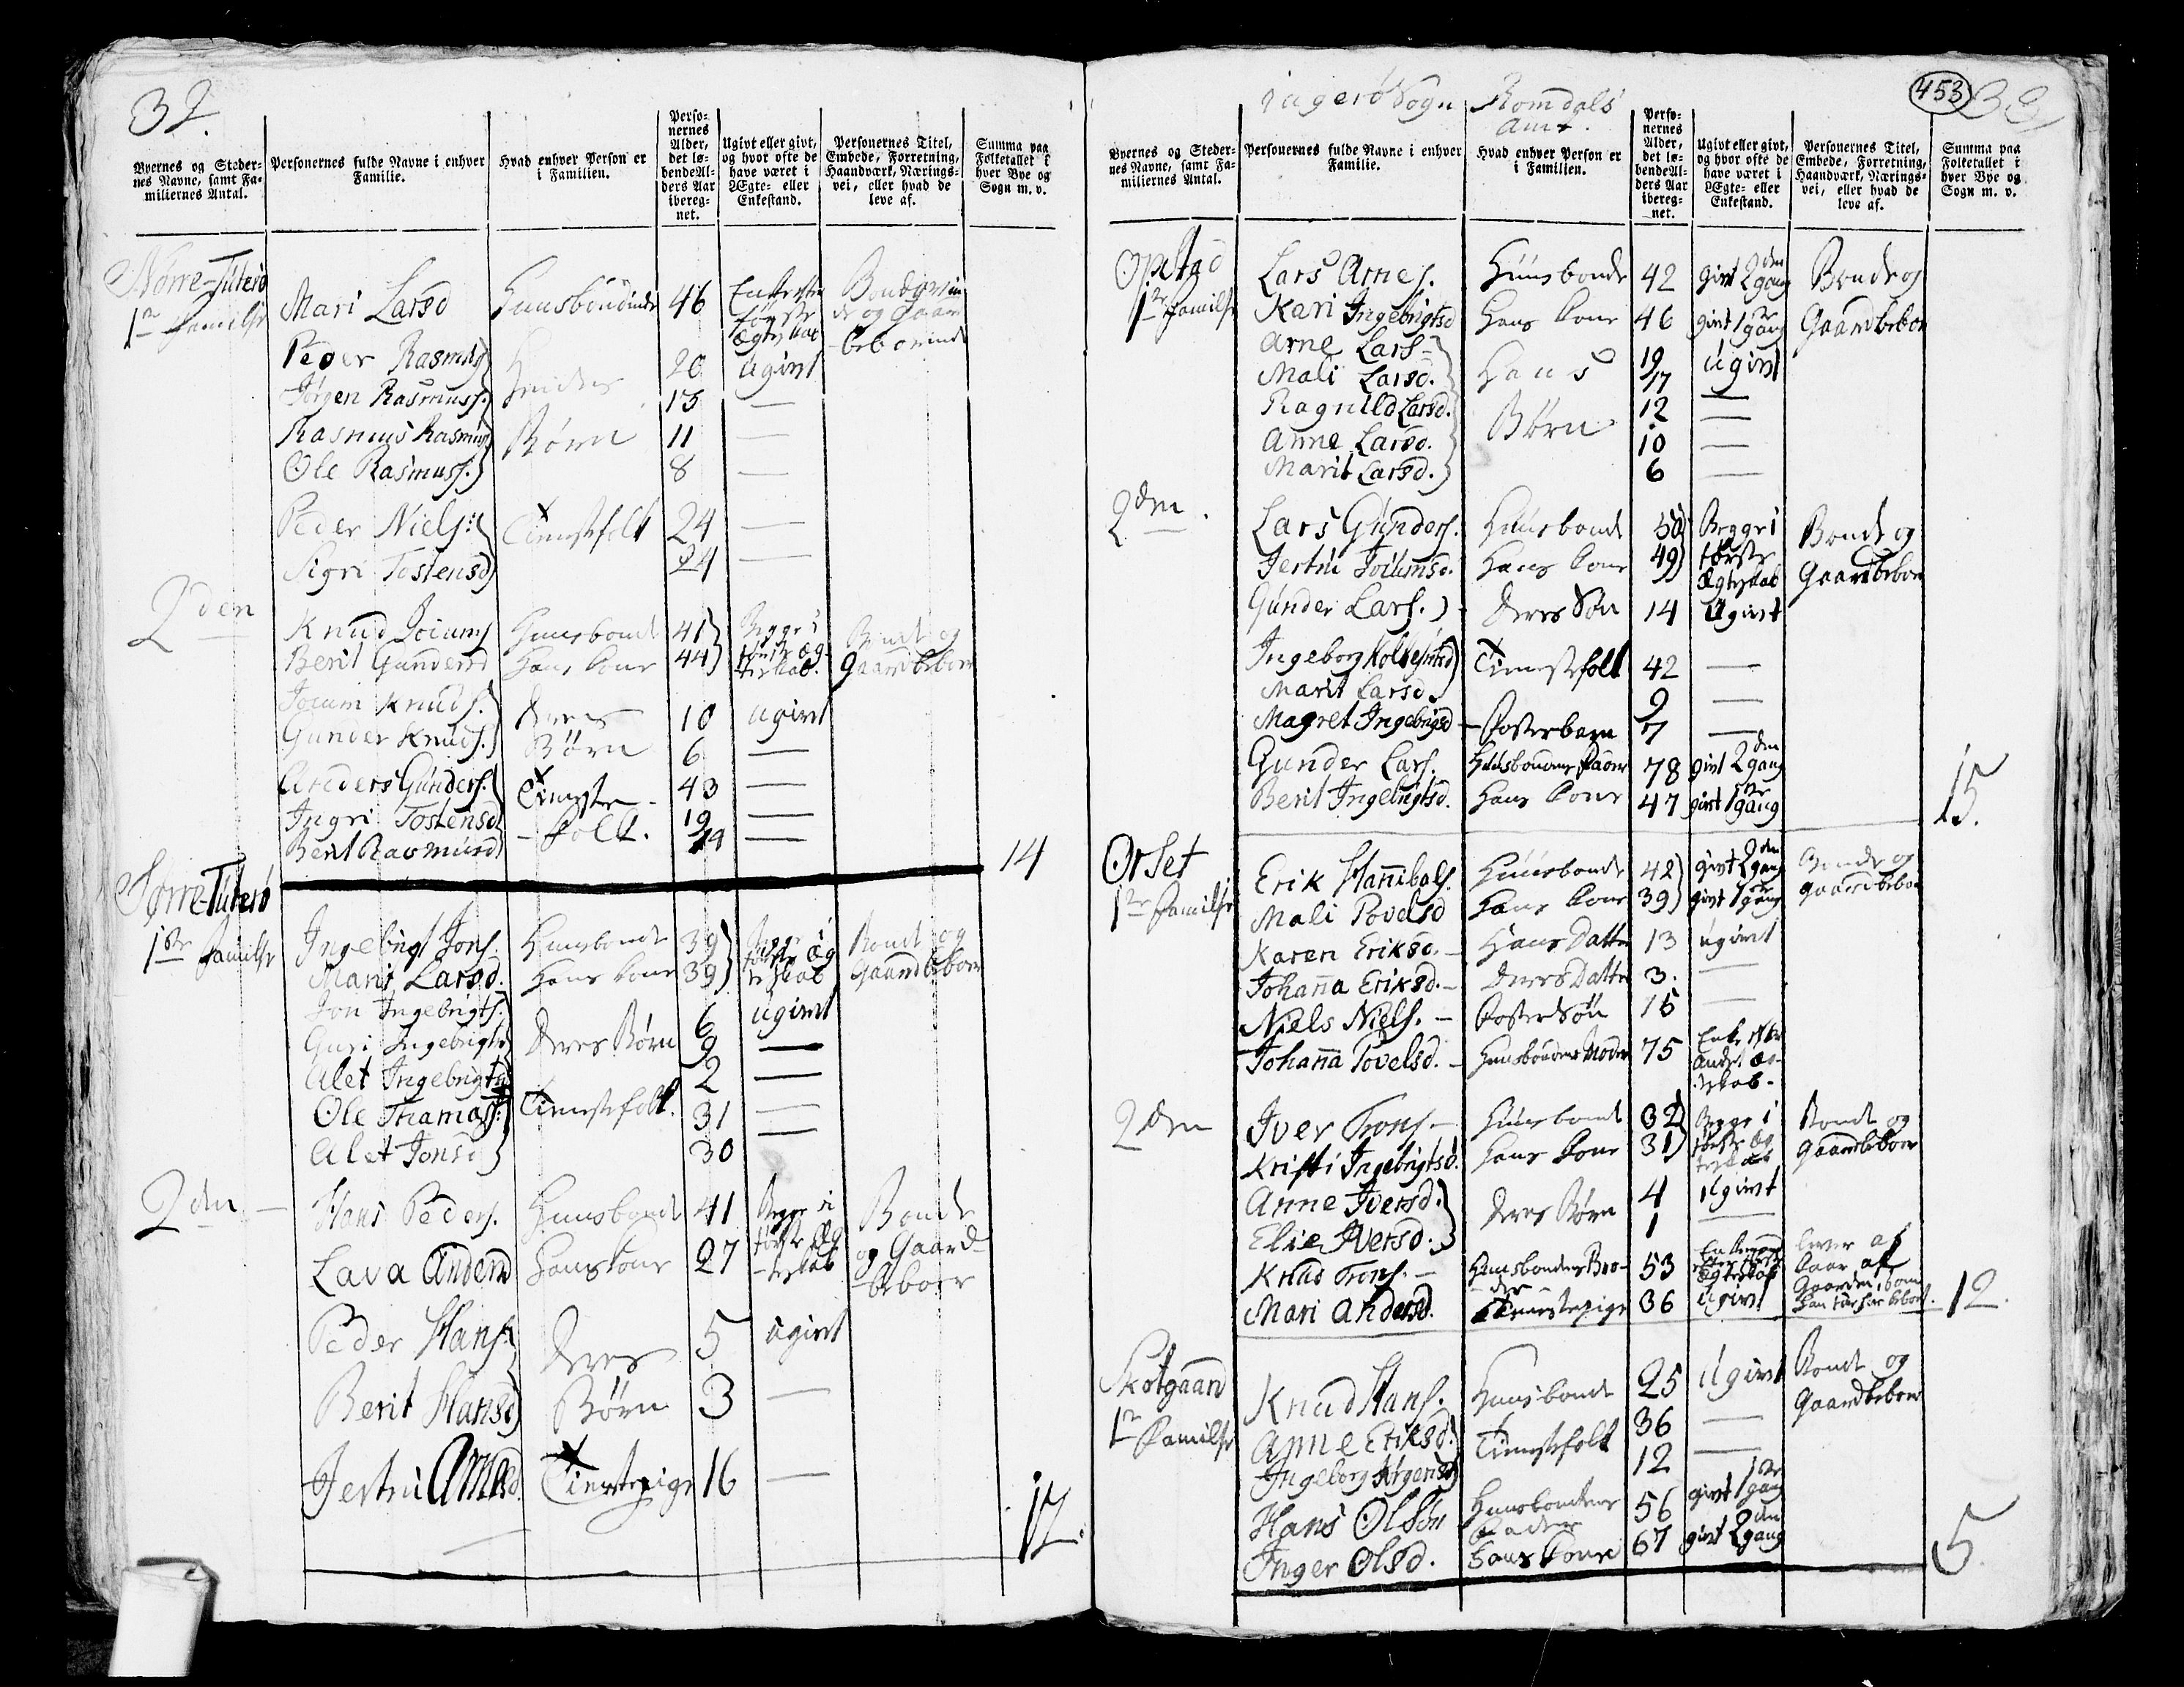 32.
Byernes og Steder-
nes Navne, samt Fa-
miliernes Antal.
Personernes fulde Navne i enhver
Familie.
Hvad enhver Person er
i Familien.
Perso-
nernes
Alder,
det lø-
bende Al-
ders Aar
ibereg-
net.
Ugivt eller givt,
og hvor ofte de
have været i
Ægte- eller
Enkestand.
Personernes Titel,
Embede, Forretning,
Haandværk, Nærings-
vei, eller hvad de
leve af.
Summa paa
Folketallet i
hver Bye og
Sogn m. v.
Nørre-Tuterø
1te Familie Mari Larsd Huusbondinde 46 Enke efter første Ægteskab Bondqvinde og Gaardbeboerinde
Peder Rasmuss 20 ugivt
Jørgen Rasmuss. Hendes 15 —
Rasmus Rasmuss Børn 11 —
Ole Rasmuss. 8 —
Peder Niels: Tienstefolk 24 —
Sigri Tostensd 24 —
2den
Knud Joiums Huusbonde 41 Begge i første Ægteskab. Bonde og Gaardbeboer
Berit Gundersd Hans Kone 44
Joium Knuds. Deres 10 ugivt
Gunder Knuds. Børn 6 —
Anders Gunders. Tieneste- 43 —
Ingri Tostensd - folk. 19 —
Berit Rasmusd 24 —
14
Sørre-Tuterø
1ste Familie Ingebrigt Jons. Huusbonde 39 Begge i første Ægteskab Bonde og Gaardbeboer
Marit Larsd. Hans Kone 39
Jon Ingebrigts. 6 ugivt
Guri Ingebrigtsd Deres Børn 9 —
Alet Ingebrigtsd 2 —
Ole Thamass: Tienestefolk. 31 —
Alet Jonsd 30 —
2den — Hans Peders. Huusbonde 41 Begge i første Ægteskab Bonde og Gaard-beboer
Lava Andersd Hans Kone 27
Peder Hans: Deres 5 ugivt
Berit Hansd Børn 3 —
Jertru Arnesd. Tienstepige 16 —
17.
453
33
Romdals
Amt.
Byernes og Steder-
nes Navne, samt Fa-
miliernes Antal.
Personernes fulde Navne i enhver
Familie.
Hvad enhver Person er
i Familien.
Perso-
nernes
Alder,
det lø-
bende Al-
ders Aar
ibereg-
net.
Ugivt eller givt,
og hvor ofte de
have været i
Ægte- eller
Enkestand.
Personernes Titel,
Embede, Forretning,
Haandværk, Nærings-
vei, eller hvad de
leve af.
Summa paa
Folketallet i
hver Bye og
Sogn m. v.
Opstad
1te Familie Lars Arnes. Huusbonde 42 givt 2den gang Bonde og
Kari Ingebrigtsd Hans Kone 46 givt 1te gang Gaardbeboer
Arne Lars- 19 Ugivt
Mali Larsd. Hans 17 —
Ragnild Larsd. 12 —
Anne Larsd. Børn 10 —
Marit Larsd. 6 —
2den. Lars Gunders. Huusbonde 50 Begge i første Ægteskab Bonde og Gaardbeboer
Jertru Joiumsd. Hans Kone 49
Gunder Lars. Deres Søn 14 Ugivt
Ingeborg Kolbeinsd Tienstefolk 42 —
Marit Larsd. 9 —
Magret Ingebrigsd — Fosterbarn 7 —
Gunder Lars. Huusbondens Fader 78 givt 2den gang
Berit Ingebrigtsd. Hans Kone 47 givt 1te gang
15.
Orset
1te Familie Erik Hanibals. Huusbonde 42 givt 2den gang Bonde og
Mali Povelsd Hans Kone 39 givt 1te gang Gaardbeboer
Karen Eriksd. — Hans Datter 13 ugivt
Johana Eriksd. — Deres Datter 3. —
Niels Niels. — Foster Søn 15 —
Johana Povelsd. — Huusbondens Moder 75 Enke efter andet Ægteskab.
2den Iver Trons — Huusbonde 32 Begge i første Ægteskab Bonde og Gaardbeboer
Kristi Ingebrigtsd. Hans Kone 31
Anne Iversd. Deres Børn 4 Ugivt
Elie Iversd. 1 —
Knud Trons. — Huusbondens Broder 53 Enkemand efter første Ægteskab lever af Kaar af Gaarden, som han før har beboet.
Mari Andersd. Tienstepige 36 ugivt
12.
Skotgaard
1te Familie Knud Hans. Huusbonde 25 Ugivt Bonde og Gaardbeboer
Anne Eriksd. Tienstefolk 36 —
Ingeborg Jørgensd 12 —
Hans Olsøn Huusbondens Fader 56 givt 1te gang
Inger Olsd. Hans Kone 67 givt 2den gang
5